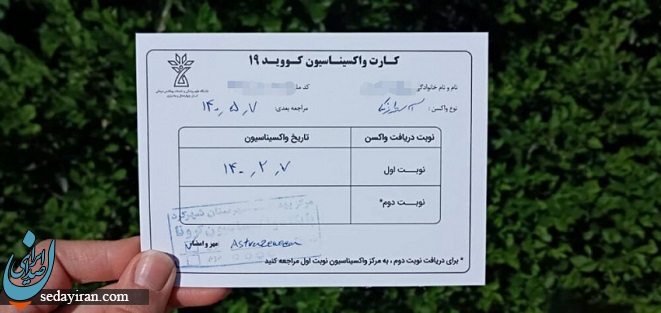 کارت واکسیناسیون کووید ۱۹
نام و نام خانوادگی: کد ملی
نوع واکسن: آسترازنکا مراجعه بعدی: ۱۴۰۰٫۵٫۷
نوبت دریافت واکسن تاریخ واکسیناسیون
نوبت اول ۱۴۰۰٫۲٫۷
نوبت دوم*
مهر و امضای AstraZeneca
* برای دریافت نوبت دوم ، به مرکز واکسیناسیون نوبت اول مراجعه کنید
صدای ایران
sedayiran.com